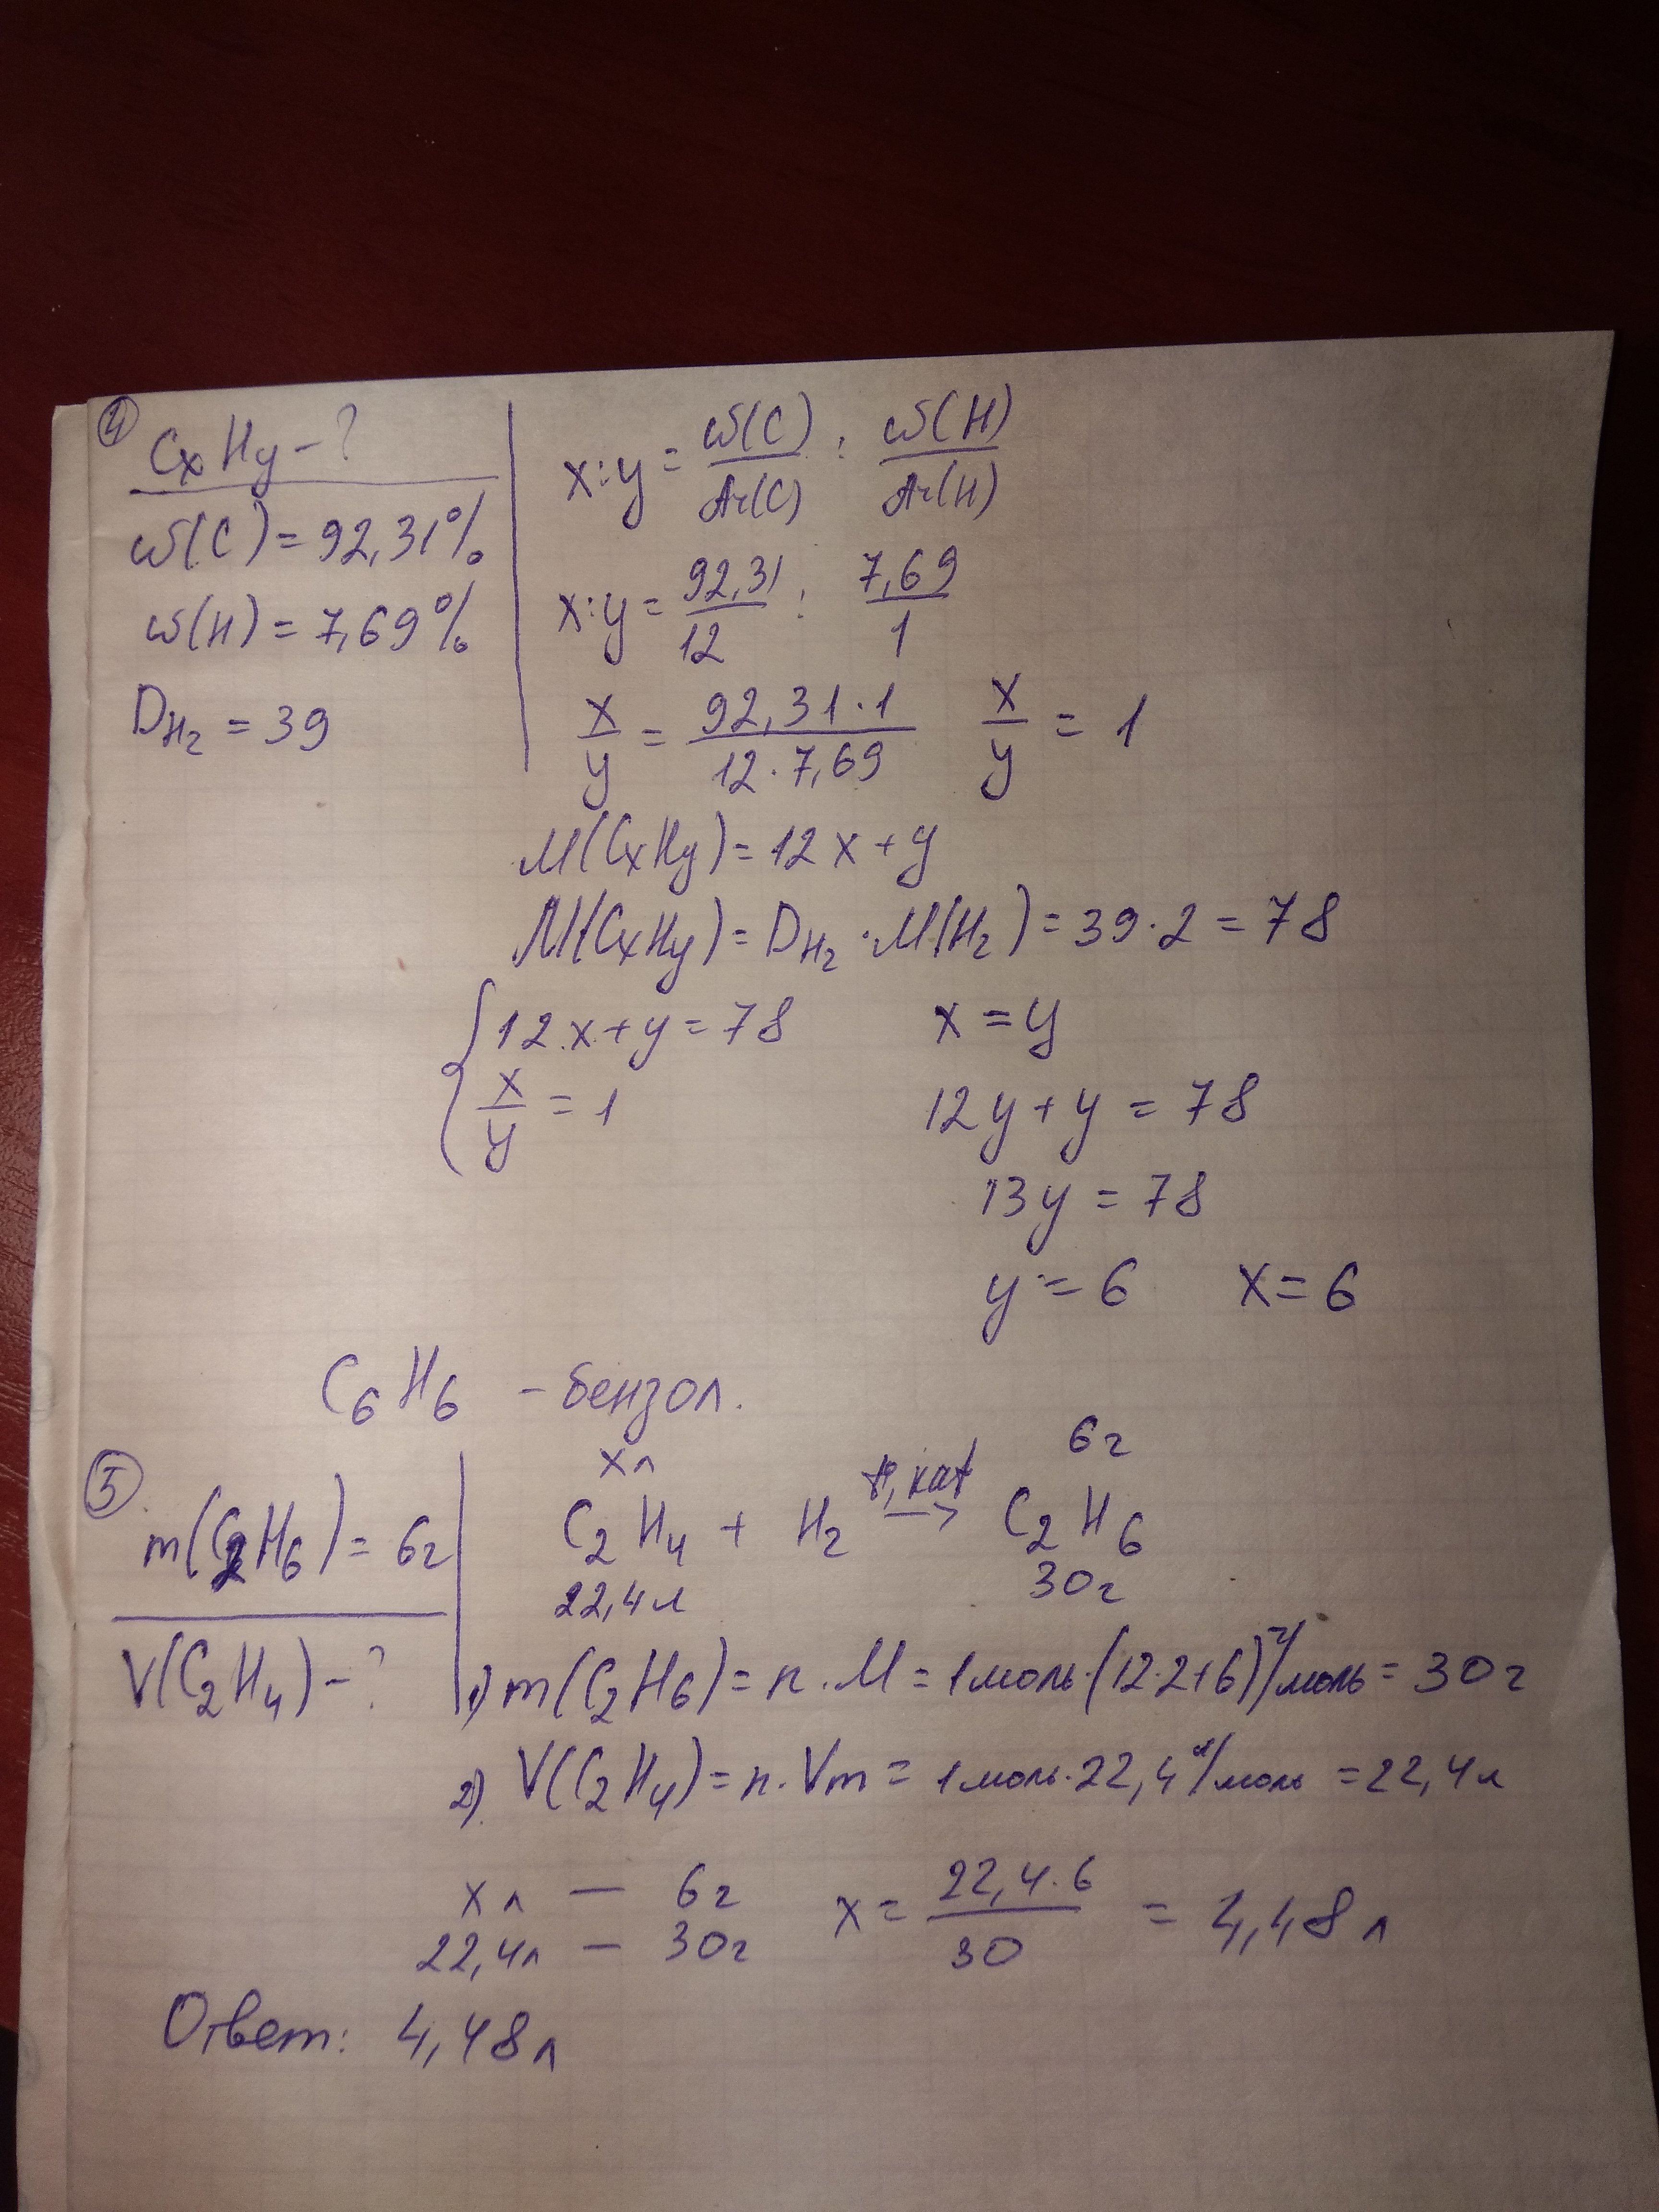 ④
CxHy - ?
ω(C) = 92,31%
ω(H) = 7,69%
D_H₂ = 39
x:y = ω(C)/Ar(C) : ω(H)/Ar(H)
x:y = 92,31/12 : 7,69/1
x/y = 92,31·1/12·7,69 x/y = 1
M(CxHy) = 12x + y
M(CxHy) = D_H₂ · M(H₂) = 39·2 = 78
{12x + y = 78 x = y
x/y = 1 12y + y = 78
13y = 78
y = 6 x = 6
C₆H₆ - бензол.
⑤
m(C₂H₆) = 6г
V(C₂H₄) - ?
xл 6г
C₂H₄ + H₂ t°, кат → C₂H₆
22,4л 30г
1) m(C₂H₆) = n · M = 1моль·(12·2+6)г/моль = 30г
2) V(C₂H₄) = n · Vm = 1моль·22,4л/моль = 22,4л
xл — 6г x = 22,4·6/30 = 4,48л
22,4л — 30г
Ответ: 4,48л